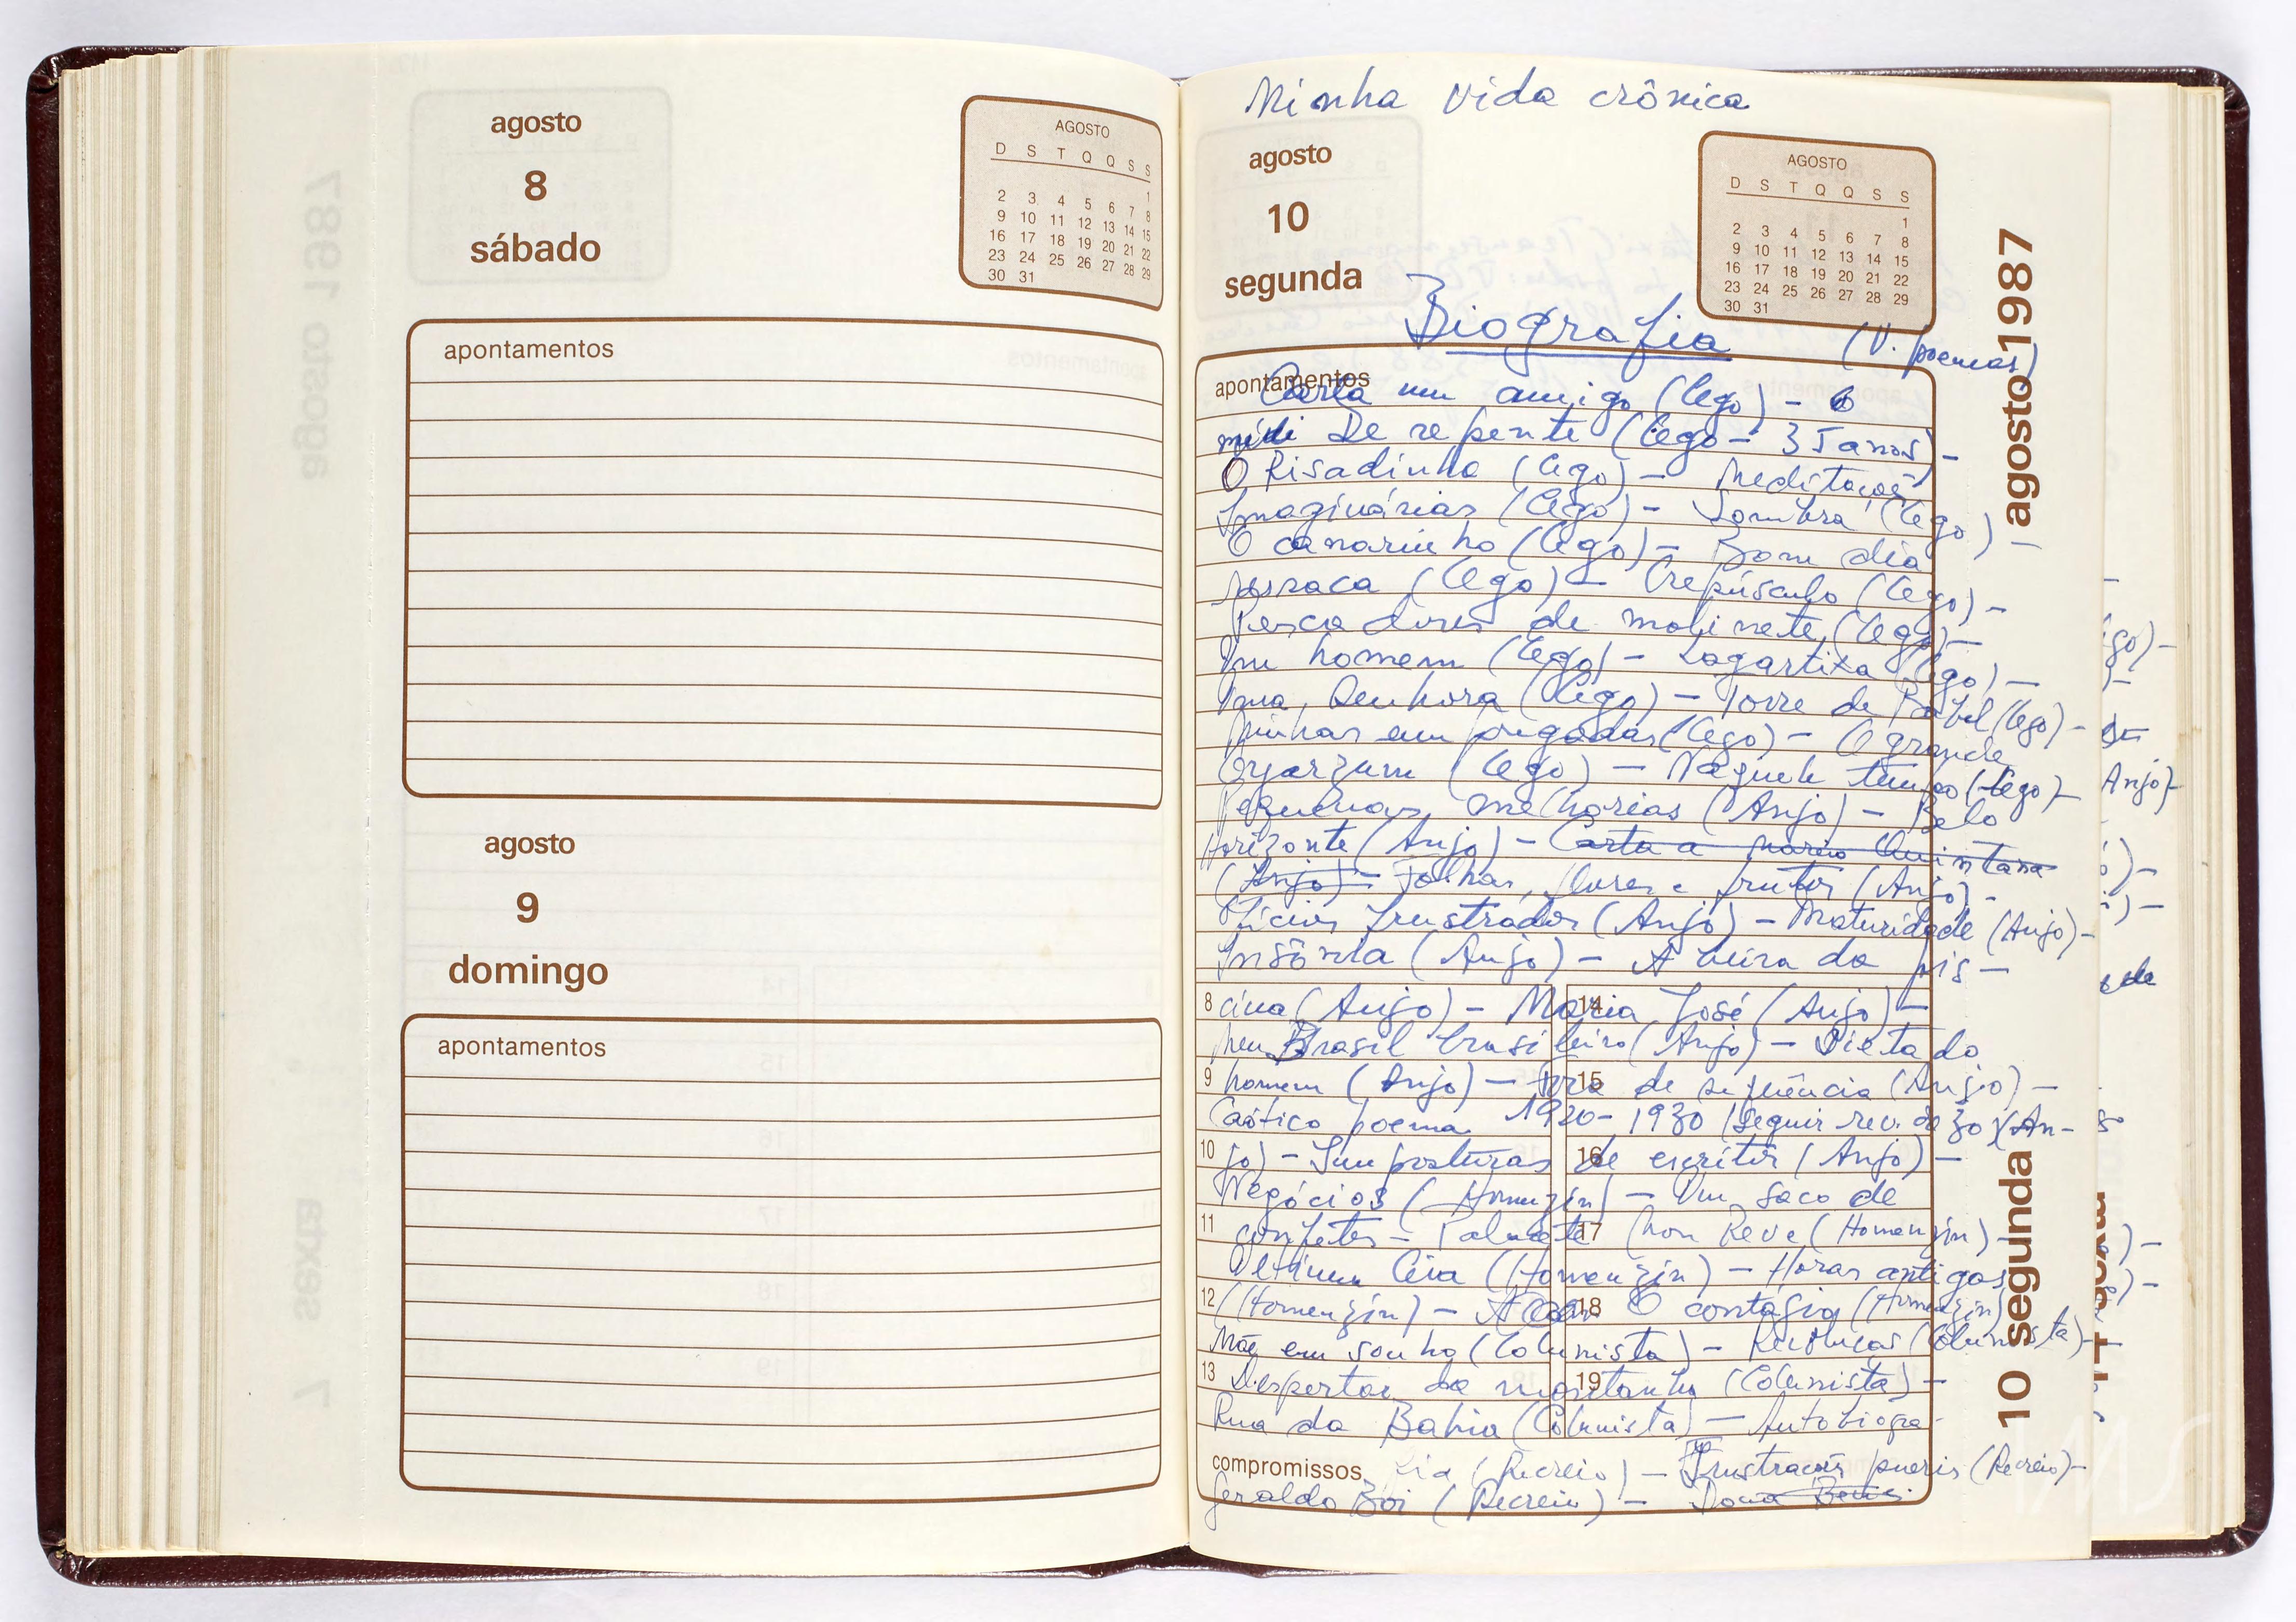 agosto
8
sábado
AGOSTO
D S T Q Q S S
1
2 3 4 5 6 7 8
9 10 11 12 13 14 15
16 17 18 19 20 21 22
23 24 25 26 27 28 29
30 31
apontamentos
agosto
9
domingo
apontamentos
Minha vida crônica
agosto
10
segunda
AGOSTO
D S T Q Q S S
1
2 3 4 5 6 7 8
9 10 11 12 13 14 15
16 17 18 19 20 21 22
23 24 25 26 27 28 29
30 31
agosto 1987
10 segunda
Biografia
(V. poemas)
apontamentos
Carta um amigo (Cego) -
De repente (Cego - 35 anos) -
O Risadinha (Cego) - Meditações
Imaginárias (Cego) - Sombra (Cego) -
O canarinho (Cego) - Bom dia
ressaca (Cego) - Crepúsculo (Cego) -
Pescadores de molinete (Cego) -
Um homem (Cego) - Lagartixa (Cego) -
Uma Senhora (Cego) - Torre de Babel (Cego) -
Minhas empregadas (Cego) - O grande
Oyarzum (Cego) - Naquele tempo (Cego) -
Pequenas melhorias (Anjo) - Belo
Horizonte (Anjo) - Carta a Mario Quintana
(Anjo) - Folhas, flores e frutos (Anjo) -
Ofícios frustrados (Anjo) - Maturidade (Anjo) -
Insônia (Anjo) - À beira da pis -
8 cina (Anjo) - Maria José (Anjo) - 14
Meu Brasil brasileiro (Anjo) - Dieta do
9 homem (Anjo) - Fora de sequência (Anjo) - 15
Caótico poema 1920 - 1930 (Seguir rev. de 30) (An-
10 jo) - Imposturas de escritor (Anjo) - 16
Negócios (Homenzin) - Um saco de
11 confetes - Mon Reve (Homenzin) - 17
Última Ceia (Homenzin) - Horas antigas
12 (Homenzin) - O contágio (Homenzin) 18
Mãe em sonho (Colunista) - (Colunista) -
13 Despertar da montanha (Colunista) - 19
Rua da Bahia (Colunista) - Autobiogra-
compromissos
fia (Recreio) - Frustrações pueris (Recreio) -
Geraldo Boi (Recreio) - Dona
Anjo) -
de
MS